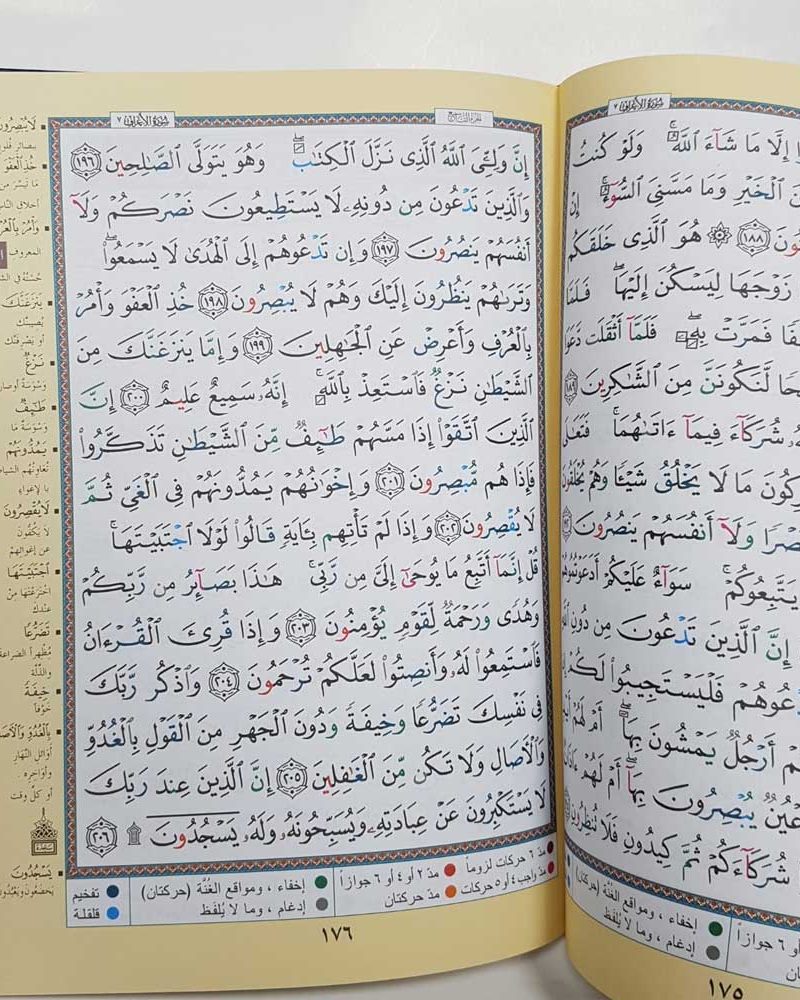 سورة الأعراف ٧
إِلَّا مَا شَآءَ ٱللَّهُ ۚ وَلَوْ كُنتُ
ٱلْخَيْرِ وَمَا مَسَّنِىَ ٱلسُّوٓءُ ۚ إِنْ
١٨٨ ۞ هُوَ ٱلَّذِى خَلَقَكُم
زَوْجَهَا لِيَسْكُنَ إِلَيْهَا ۖ فَلَمَّا
فَمَرَّتْ بِهِۦ ۖ فَلَمَّآ أَثْقَلَت دَّعَوَا
لَّنَكُونَنَّ مِنَ ٱلشَّـٰكِرِينَ ١٨٩
شُرَكَآءَ فِيمَآ ءَاتَىٰهُمَا ۚ فَتَعَـٰلَى
مَا لَا يَخْلُقُ شَيْـًٔا وَهُمْ يُخْلَقُونَ
وَلَآ أَنفُسَهُمْ يَنصُرُونَ
يَتَّبِعُوكُمْ ۚ سَوَآءٌ عَلَيْكُمْ أَدَعَوْتُمُوهُمْ
إِنَّ ٱلَّذِينَ تَدْعُونَ مِن دُونِ ٱللَّهِ
فَلْيَسْتَجِيبُوا۟ لَكُمْ
أَرْجُلٌ يَمْشُونَ بِهَآ ۖ أَمْ لَهُمْ
يُبْصِرُونَ بِهَآ ۖ أَمْ لَهُمْ ءَاذَانٌ
شُرَكَآءَكُمْ ثُمَّ كِيدُونِ فَلَا تُنظِرُونِ
إخفاء ، ومواقع الغُنَّة (حركتان)
إدغام ، وما لا يُلفَظ
١٧٥
سورة الأعراف ٧
الجزء التاسع
إِنَّ وَلِـِّۧىَ ٱللَّهُ ٱلَّذِى نَزَّلَ ٱلْكِتَـٰبَ ۖ وَهُوَ يَتَوَلَّى ٱلصَّـٰلِحِينَ ١٩٦
وَٱلَّذِينَ تَدْعُونَ مِن دُونِهِۦ لَا يَسْتَطِيعُونَ نَصْرَكُمْ وَلَآ
أَنفُسَهُمْ يَنصُرُونَ ١٩٧ وَإِن تَدْعُوهُمْ إِلَى ٱلْهُدَىٰ لَا يَسْمَعُوا۟ ۖ
وَتَرَىٰهُمْ يَنظُرُونَ إِلَيْكَ وَهُمْ لَا يُبْصِرُونَ ١٩٨ خُذِ ٱلْعَفْوَ وَأْمُرْ
بِٱلْعُرْفِ وَأَعْرِضْ عَنِ ٱلْجَـٰهِلِينَ ١٩٩ وَإِمَّا يَنزَغَنَّكَ مِنَ
ٱلشَّيْطَـٰنِ نَزْغٌ فَٱسْتَعِذْ بِٱللَّهِ ۚ إِنَّهُۥ سَمِيعٌ عَلِيمٌ ٢٠٠ إِنَّ
ٱلَّذِينَ ٱتَّقَوْا۟ إِذَا مَسَّهُمْ طَـٰٓئِفٌ مِّنَ ٱلشَّيْطَـٰنِ تَذَكَّرُوا۟
فَإِذَا هُم مُّبْصِرُونَ ٢٠١ وَإِخْوَٰنُهُمْ يَمُدُّونَهُمْ فِى ٱلْغَىِّ ثُمَّ
لَا يُقْصِرُونَ ٢٠٢ وَإِذَا لَمْ تَأْتِهِم بِـَٔايَةٍ قَالُوا۟ لَوْلَا ٱجْتَبَيْتَهَا ۚ
قُلْ إِنَّمَآ أَتَّبِعُ مَا يُوحَىٰٓ إِلَىَّ مِن رَّبِّى ۚ هَـٰذَا بَصَآئِرُ مِن رَّبِّكُمْ
وَهُدًى وَرَحْمَةٌ لِّقَوْمٍ يُؤْمِنُونَ ٢٠٣ وَإِذَا قُرِئَ ٱلْقُرْءَانُ
فَٱسْتَمِعُوا۟ لَهُۥ وَأَنصِتُوا۟ لَعَلَّكُمْ تُرْحَمُونَ ٢٠٤ وَٱذْكُر رَّبَّكَ
فِى نَفْسِكَ تَضَرُّعًا وَخِيفَةً وَدُونَ ٱلْجَهْرِ مِنَ ٱلْقَوْلِ بِٱلْغُدُوِّ
وَٱلْـَٔاصَالِ وَلَا تَكُن مِّنَ ٱلْغَـٰفِلِينَ ٢٠٥ إِنَّ ٱلَّذِينَ عِندَ رَبِّكَ
لَا يَسْتَكْبِرُونَ عَنْ عِبَادَتِهِۦ وَيُسَبِّحُونَهُۥ وَلَهُۥ يَسْجُدُونَ ۩ ٢٠٦
مدّ ٦ حركات لزوماً
مدّ ٢ أو ٤ أو ٦ جوازاً
إخفاء ، ومواقع الغُنَّة (حركتان)
تفخيم
مدّ واجب ٤ أو ٥ حركات
مدّ حركتان
إدغام ، وما لا يُلفَظ
قلقلة
١٧٦
لَا يُبْصِرُونَ
خُذِ الْعَفْوَ
وَأْمُرْ بِالْعُرْفِ
المعروف
يَنزَغَنَّكَ
يصيبنّك
أو يصرفنّك
نَزْغٌ
طَـٰٓئِفٌ
وسوسةٌ ما
يَمُدُّونَهُمْ
بالإغواء
لَا يُقْصِرُونَ
لا يكفّون
عن إغوائهم
اجْتَبَيْتَهَا
عندك
تَضَرُّعًا
مُظهِراً الضراعة
والذِّلّة
خِيفَةً
خَوْفاً
بِالْغُدُوِّ وَالْآصَالِ
أوائل النّهار
وأواخره
أو كلّ وقت
يَسْجُدُونَ